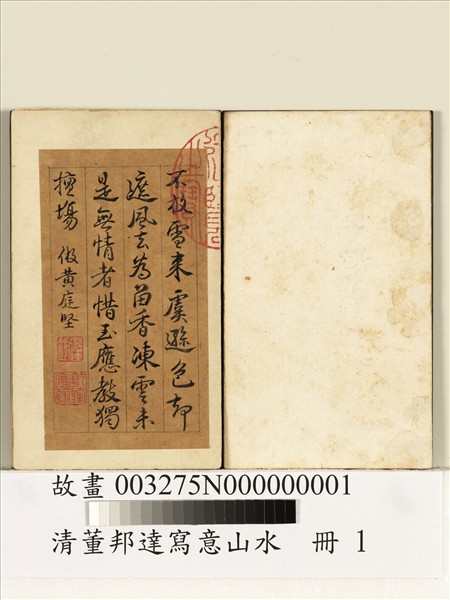 不放雪來虞遜色却
遮風去為留香凍雲未
是無情者惜玉應教獨
擅場 倣黃庭堅
故畫 003275N000000001
清董邦達寫意山水 冊 1